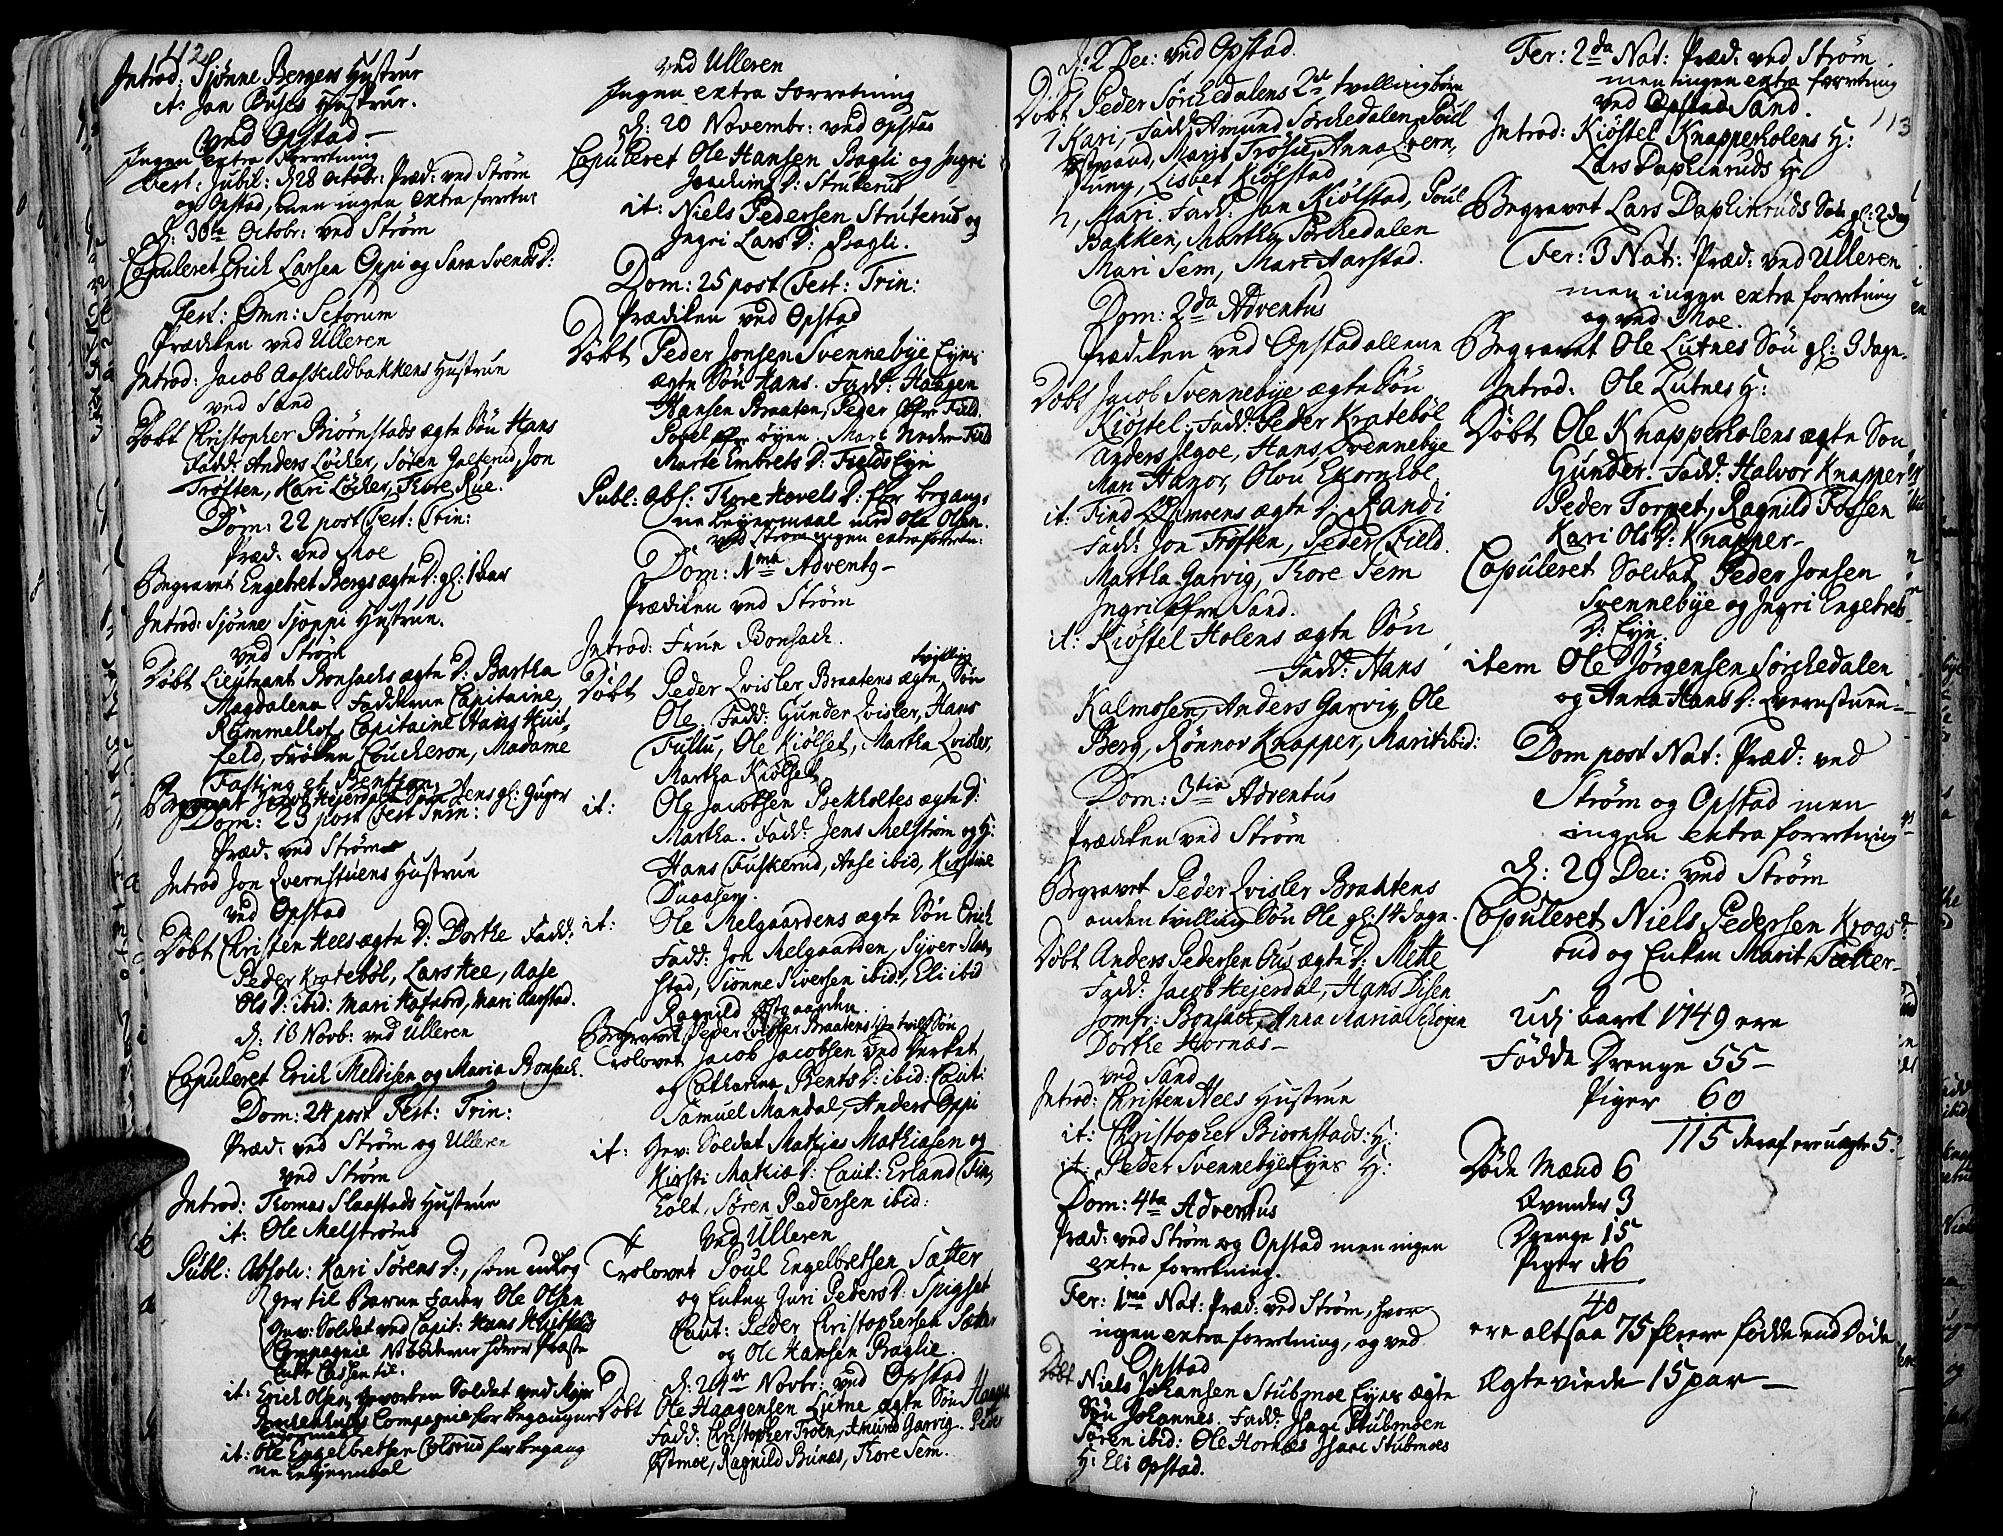 112
Introd: Siønne Bergers Hustrue
it: Jan Buses Hustrue.
ved Opstad
Ingen extra Forretning
Fest: Jubil: d: 28 Octobr: Præd: ved Strøm
og Opstad, men ingen extra forretn:
d: 30te Octobr: ved Strøm
Copuleret Erich Larsen Oppi og Sara Svends D:
Fest: Omn: Sctorum
Prædiken ved Ulleren
Introd: Jacob Aaskildbakkens Hustrue
ved Sand
Døbt Christopher Biørnstads ægte Søn Hans
Fadd: Anders Løcker, Søren Galterud, Jon
Trøften, Kari Løcker, Thore Rue.
Dom: 22 post Fest: Trin:
Præd: ved Moe
Begravet Engebret Bergs ægte D: gl: 1 aar
Introd: Siønne Sioppi Hustrue.
ved Strøm
Døbt Lieutnant Bonsachs ægte D: Bartha
Magdalena. Fadderne Capitaine
Rømmelhof, Capitaine Hans Huit-
feld, Frøken Coucheron, Madame
Fasting et Bentson
Begravet Jacob Hejerdals Søn Jens gl: 9 uger
Dom: 23 post Fest Trin:
Præd: ved Strøm
Introd Jon Qvernstuens Hustrue
ved Opstad
Døbt Christen Hees ægte D: Dorthe Fadd:
Peder Kratebøl, Lars Hee, Aase
Ols D: ibid: Mari Hafnord, Mari Aarstad.
d: 18 Novb: ved Ulleren
Copuleret Erich Meldisen og Maria Bonsach.
Dom: 24 post Fest: Trin:
Præd: ved Strøm og Ulleren
ved Strøm
Introd: Thomas Slaastads Hustrue
it: Ole Melstrøms
Publ: Absolv: Kari Sørens D:, som udlag
ger til Barne Fader Ole Olsen
Gev: Soldat ved Capit: Hans Huitfelds
Compagnie
Cassen til.
it: Erich Olsen Geworben Soldat ved Major
Compagnie for begangne
Leyermaal
it: Ole Engelbretsen Colsrud for begang
ne Leyermaal
ved Ulleren
Ingen extra Forretning
d: 20 Novembr: ved Opstad
Copuleret Ole Hansen Bagli og Ingri
Joachims D: Struterud
it: Niels Pedersen Struterud og
Ingri Lars D: Bagli.
Dom: 25 post Fest: Trin:
Prædiken ved Opstad
Døbt Peder Jonsen Svennebye Eyes
ægte Søn Hans. Fadd: Haagen
Hansen Braaten, Peder Ofre Field.
Povel øyen, Mari Nedre Field
Marte Embrets D: Fields Eye
Publ: Abs: Thore Havels D: for begang-
ne Leyermaal med Ole Olsen.
ved Strøm ingen extra forretn:
Dom: 1ma Advent9
Prædiken ved Strøm
Introd: Frue Bonsach.
Døbt Peder Qvisler Braatens ægte tvilling Søn
Ole. Fadd: Gunder Qvisler, Hans
Fullu, Ole Kiølset, Martha Qvisler,
Martha Kiølset
it: Ole Jacobsen Bekholtes ægte D:
Martha. Fadd: Jens Melstrøm og H:
Hans Fuskerud, Aase ibid, Kirstine
Duaasen.
it: Ole Melgaardens ægte Søn Erich
Fadd: Jon Melgaarden, Syver Slaa-
stad, Siønne Siversen ibid:, Eli ibid
Ragnild Østgaarden
Begravet Peder Qvisler Braatens 1te tvill: Søn
Trolovet Jacob Jacobsen ved Verket
og Catharina Bents D: ibid: Caut:
Samuel Mandal, Anders Oppi
it: Gev: Soldat Mathias Mathiasen og
Kirsti Mathiæ D: Caut: Erland Fin-
holt, Søren Pedersen ibid:
ved Ulleren
Trolovet Poul Engelbretsen Sætter
og Enken Guri Peders D: Spigset
Caut: Peder Christophersen Sætter
og Ole Hansen Baglie.
d: 24de Novbr: ved Opstad
Døbt Ole Haagensen Lutne ægte Søn Haagen
Fadd: Christopher Troen, Amund Garvig. Peder
Østmoe, Ragnild Bunæs, Thore Sem.
d: 2 Dec: ved Opstad.
Døbt Peder Sørchedalens 2de tvilling børn
1 Kari, Fadd: Amund Sørchedalen, Poul
Marit Trøften, Anna Qvern-
stuen, Lisbet Kiølstad
2, Mari. Fadd: Jan Kiølstad, Poul
Bakken, Martha Sørchedalen
Mari Sem, Mari Aarstad.
Dom: 2da Adventus
Prædiken ved Opstad allene
Døbt Jacob Svennebye ægte Søn
Kiøstel. Fadd: Peder Kratebøl
Anders Hans Svennebye
Mari Hanor, Olou Ekornhol
it: Find Ølmoens ægte D: Randi
Fadd: Jon Trøften, Peder Field.
Martha Garvig, Thore Sem
Ingri Øfre Sand.
it: Kiøstel Holens ægte Søn
Fadd: Hans
Kalmosen, Anders Garvig, Ole
Berg, Rønnov Knapper, Marit ibid:
Dom: 3tia Adventus
Prædiken ved Strøm
Begravet Peder Qvisler Braatens
anden tvilling Søn Ole gl: 14 dage.
Døbt Anders Pedersen Ous ægte D: Mette
Fadd: Jacob Hejerdal, Hans Disen
Jomfr: Bonsach, Anna Maria Schøyen
Dorthe Hornæs
ved Sand
Introd: Christen Hees Hustrue
it: Christopher Biornstads: H:
it: Peder Svennebye Eyes H:
Dom: 4ta Adventus
Præd: ved Strøm og Opstad men ingen
extra forretning.
Fer: 1ma Nat: Præd: ved Strøm, hvor
ingen extra forretning, og ved
Opstad
Døbt Niels Johansen Stubmoe Eyes ægte
Søn Johannes. Fadd: Isaac Stubmoen
Søren ibid: Ole Hornæs Isaac Stubmoes
H: Eli Opstad.
Fer: 2da Nat: Præd: ved Strøm
men ingen extra forretning
ved Sand.
113
Introd: Kiøstel Knapperholens H:
Lars Daphinruds H:
Begravet Lars Daphinruds Søn gl: 2 dag
Fer: 3 Nat: Præd: ved Ulleren
men ingen extra forretning
og ved Moe.
Begravet Ole Lutnes Søn gl: 9 dage.
Introd: Ole Lutnes H:
Døbt Ole Knapperholens ægte Søn
Gunder. Fadd: Halvor Knapper
Peder Torget, Ragnild Fossen
Kari Ols D: Knapper
Copuleret Soldat Peder Jonsen
Svennebye og Ingri Engebrets
D: Eye.
item Ole Jørgensen Sørchedalen
og Anna Hans D: Qvernstuen
Dom post Nat: Præd: ved
Strøm og Opstad men
ingen extra forretning
d: 29 Dec: ved Strøm
Copuleret Niels Pedersen Krogs-
rud og Enken Marit Sætter
Udi Aaret 1749 ere
Fødde Drenge 55
Piger 60
115 deraf ere uægte 5.
Døde Mænd 6
Qvinder 3
Drenge 15
Piger 16
40
ere altsaa 75 fleere fødde end Døde
Ægteviede 15 par